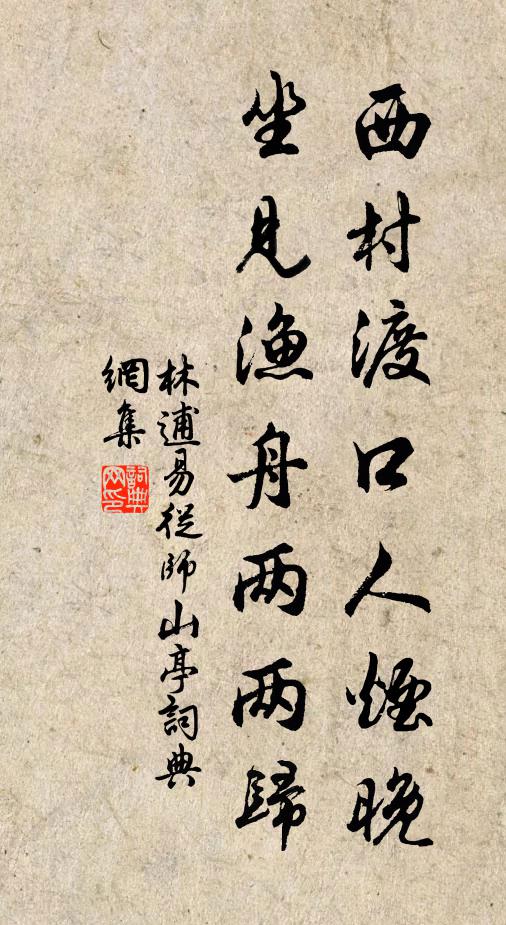 西村渡口人煙晚
坐見漁舟两两歸
林逋易從師山亭詞典
網集
詞典
网印